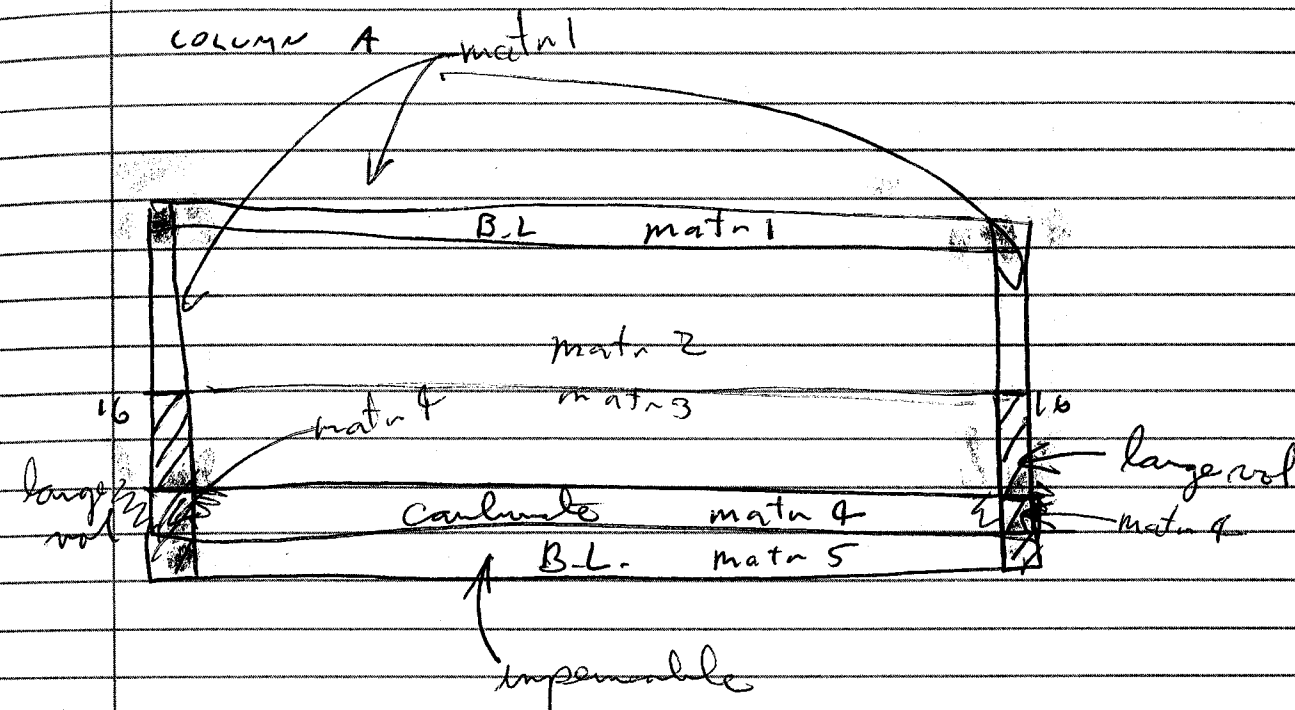 COLUMN A
matr 1
B.L matr 1
matr 2
16 matr 3 16
matr 4
large vol
large vol
carbonate matr 4
matr 4
B.L. matr 5
impermeable